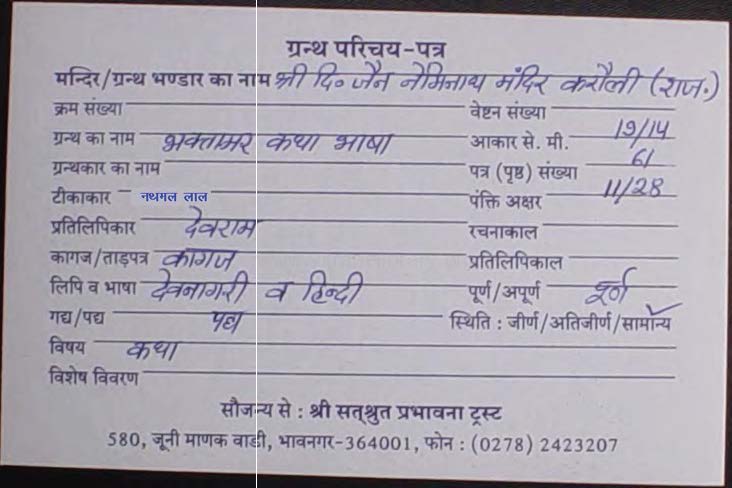 ग्रन्थ परिचय-पत्र
मन्दिर/ग्रन्थ भण्डार का नाम श्री दि॰ जैन नेमिनाथ मंदिर करौली (राज॰)
क्रम संख्या वेष्टन संख्या
ग्रन्थ का नाम भक्तामर कथा भाषा आकार से. मी. 19/14
ग्रन्थकार का नाम पत्र (पृष्ठ) संख्या 61
टीकाकार नथगल लाल पंक्ति अक्षर 11/28
प्रतिलिपिकार देवराम रचनाकाल
कागज/ताड़पत्र कागज प्रतिलिपिकाल
लिपि व भाषा देवनागरी व हिन्दी पूर्ण/अपूर्ण पूर्ण
गद्य/पद्य पद्य स्थिति : जीर्ण/अतिजीर्ण/सामान्य
विषय कथा
विशेष विवरण
सौजन्य से : श्री सत्श्रुत प्रभावना ट्रस्ट
580, जूनी माणक वाडी, भावनगर-364001, फोन : (0278) 2423207